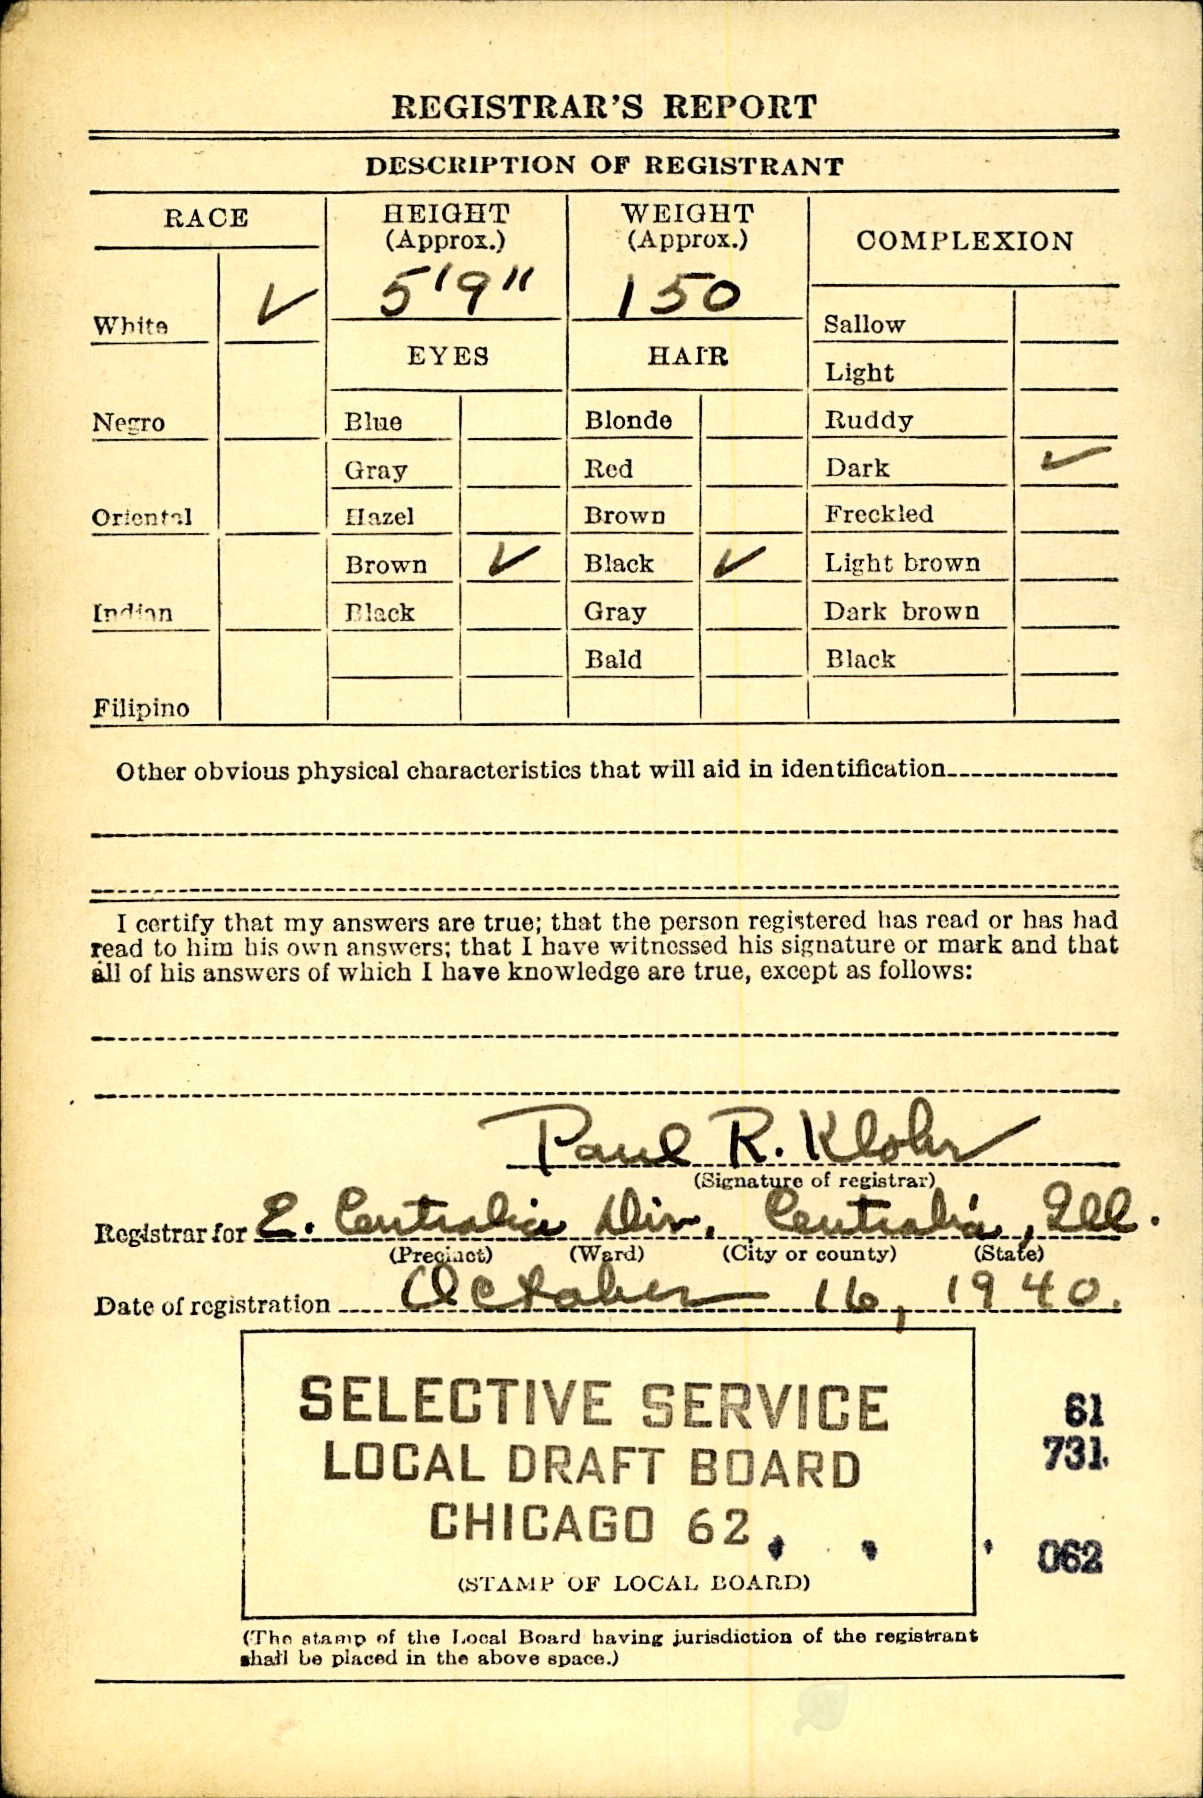 REGISTRAR'S REPORT
DESCRIPTION OF REGISTRANT
RACE
HEIGHT
(Approx.)
WEIGHT
(Approx.)
COMPLEXION
5'9"
150
White ✓
Sallow
EYES
HAIR
Light
Negro
Blue
Blonde
Ruddy
Gray
Red
Dark ✓
Oriental
Hazel
Brown
Freckled
Brown ✓
Black ✓
Light brown
Indian
Black
Gray
Dark brown
Bald
Black
Filipino
Other obvious physical characteristics that will aid in identification
I certify that my answers are true; that the person registered has read or has had
read to him his own answers; that I have witnessed his signature or mark and that
all of his answers of which I have knowledge are true, except as follows:
Paul R. Klohr
(Signature of registrar)
Registrar for E. Centralia Div. Centralia, Ill.
(Precinct) (Ward) (City or county) (State)
Date of registration October 16, 1940.
SELECTIVE SERVICE
LOCAL DRAFT BOARD
CHICAGO 62
61
731
062
(STAMP OF LOCAL BOARD)
(The stamp of the Local Board having jurisdiction of the registrant
shall be placed in the above space.)